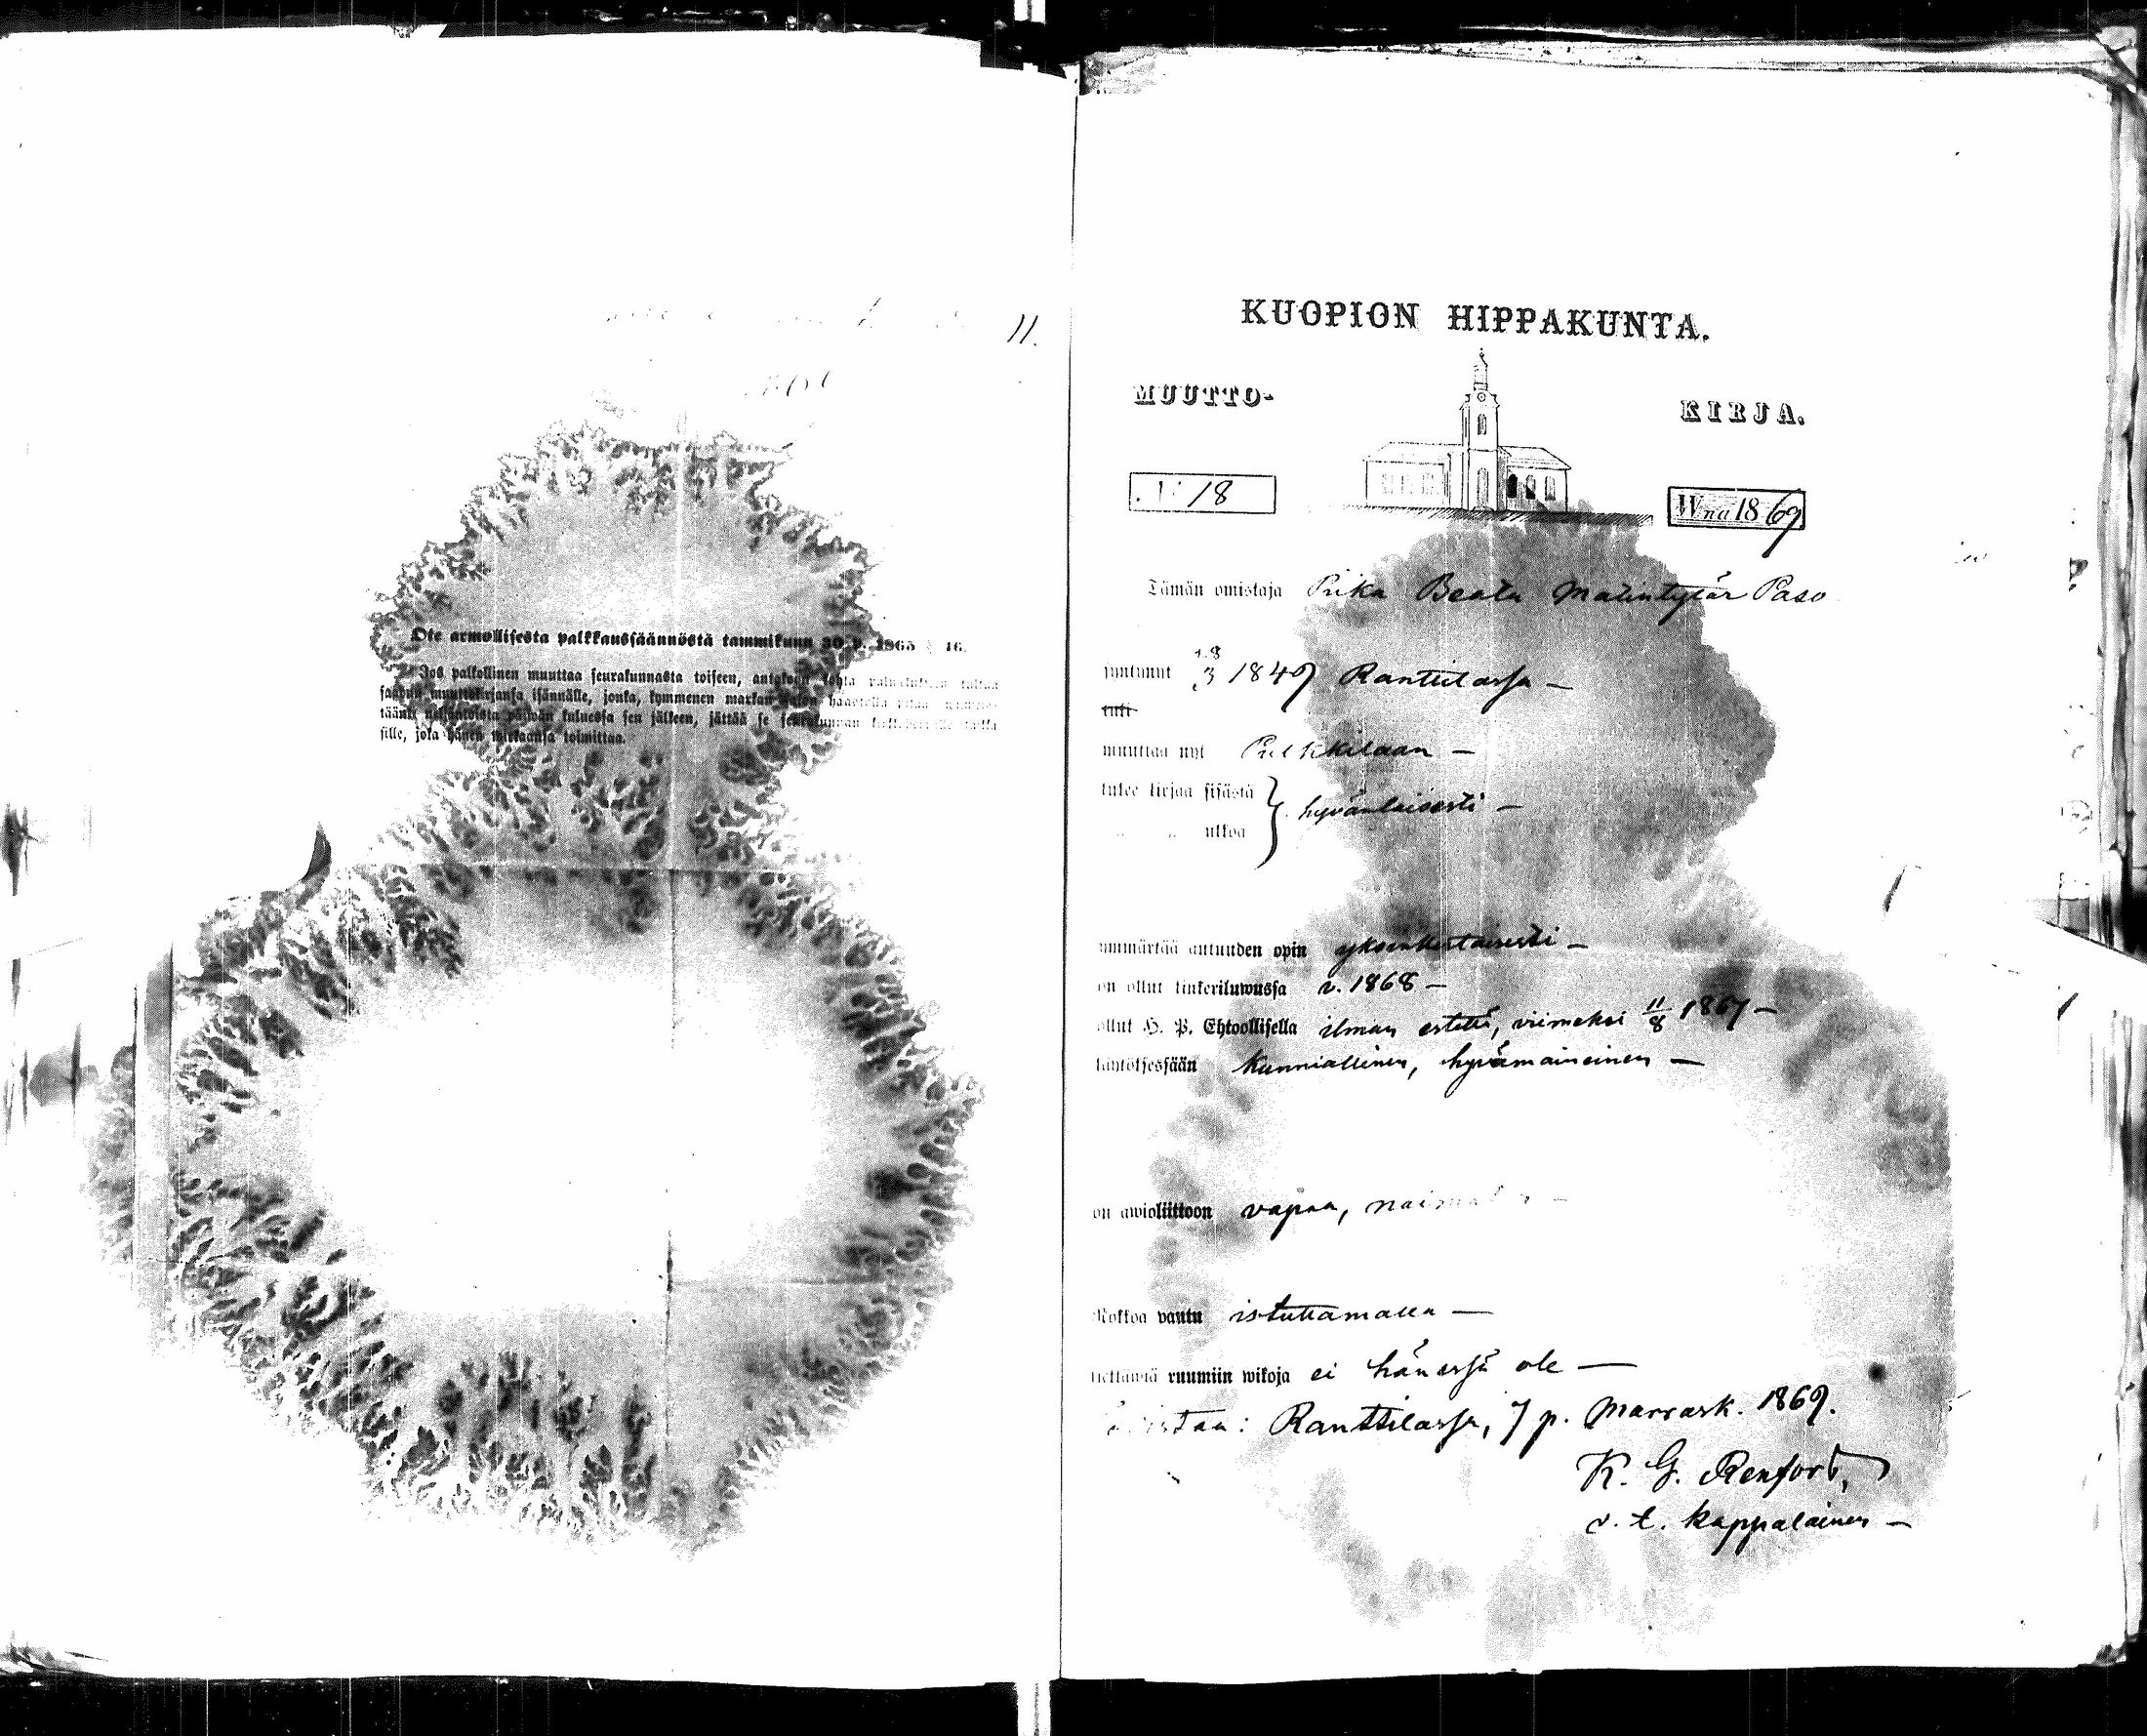 11.
Ote armollisesta palkkaussäännöstä tammikuun 30 p. 1865 § 16.
Jos palkollinen muuttaa seurakunnasta toiseen, antakoon kohta palvelukseen tultua
saadun muuttokirjansa isännälle, jonka, kymmenen markan sakon haastolla pitää
täänki neljäntoista päiwän kuluessa sen jälkeen, jättää se seurakunnan
sille, joka hänen wirkaansa toimittaa.
KUOPION HIPPAKUNTA.
MUUTTO-
KIRJA.
N: 18
Wna 1869
Tämän omistaja Prika Beata Matintytär Paso
syntynyt 18/3 1849 Ranttilassa —
tuli
muuttaa nyt Pulkkilaan —
lukee kirjaa sisästä } hyvänlaisesti —
" " ulkoa
ymmärtää autuuden opin yksinkertaisesti —
on ollut linkeriluwussa v. 1868 —
ollut H. P. Ehtoollisella ilman estettä, viimeksi 11/8 1867 —
käytöksessään kunniallinen, hyvämaineinen —
on awioliittoon vapaa,
Rokkoa pantu istuttamalla —
tiettäwiä ruumiin wikoja ei hänessä ole —
Ranttilassa, 7 p. Marrask. 1869.
K. G. Renfors,
v. t. kappalainen —